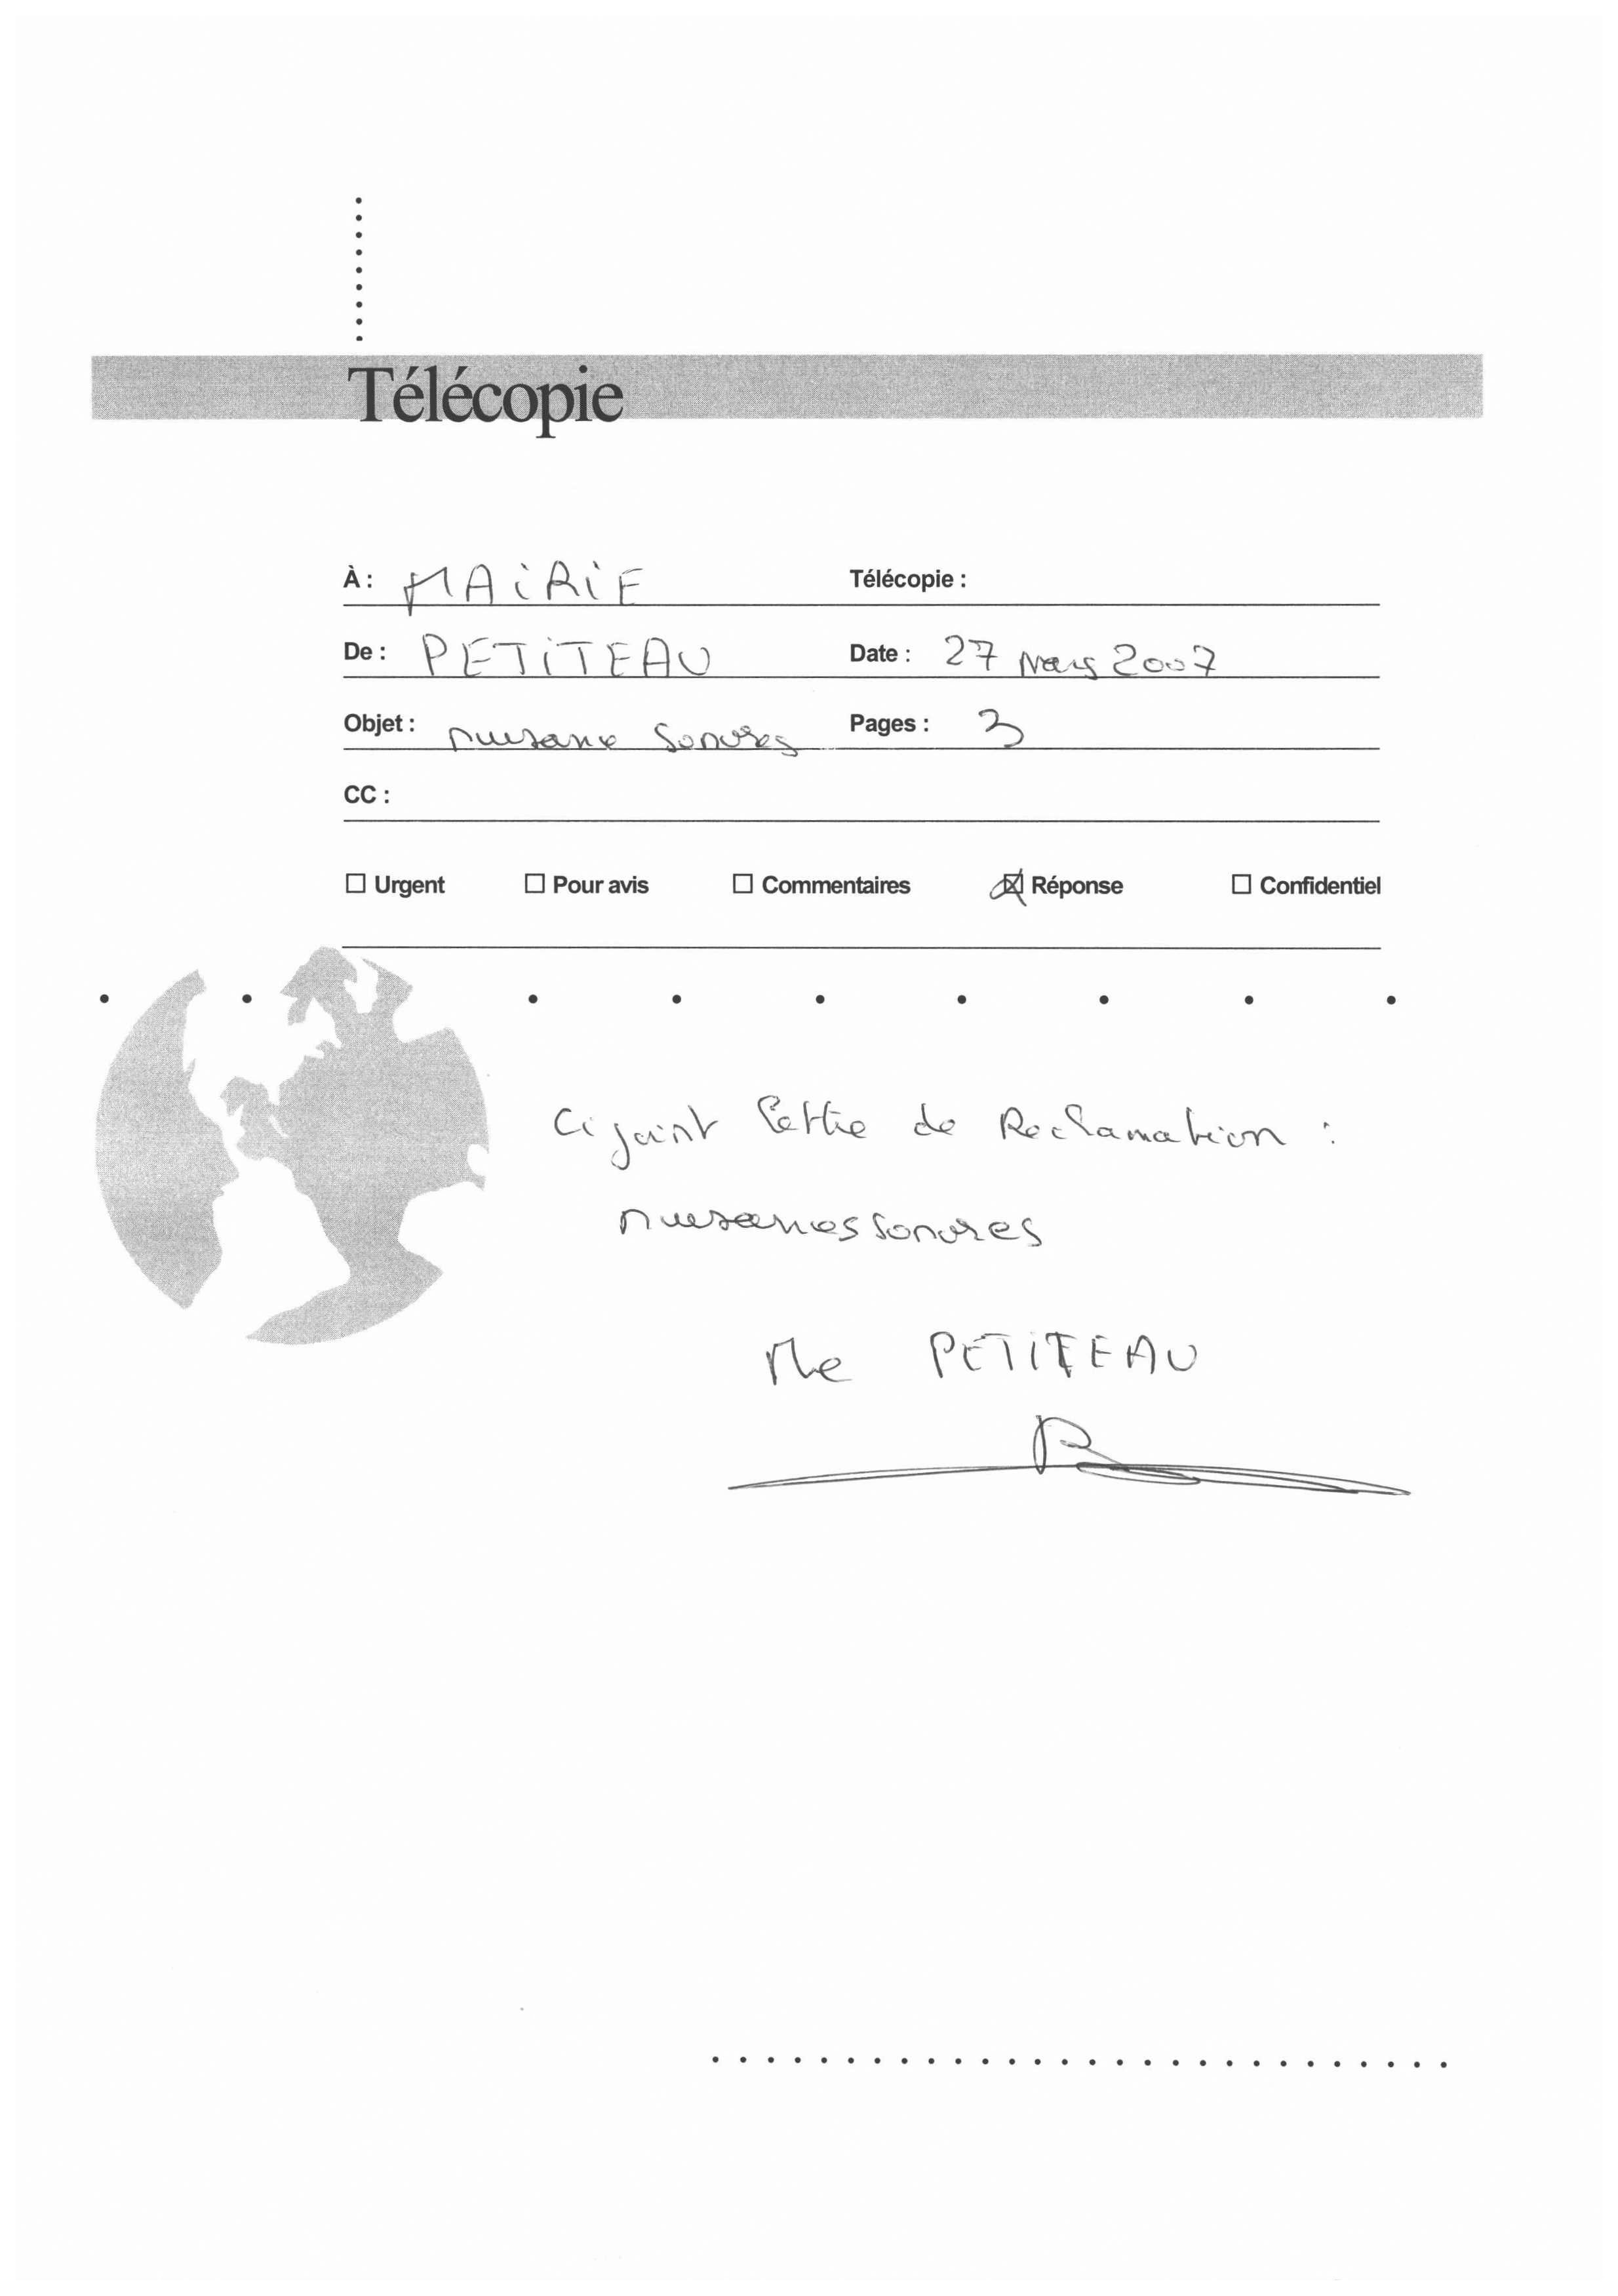 Télécopie
À : MAIRIE Télécopie :
De : PETITEAU Date : 27 mars 2007
Objet : nuisance sonores Pages : 3
CC :
Urgent Pour avis Commentaires Réponse Confidentiel
Ci joint lettre de Reclamation :
nuisances sonores
Me PETITEAU